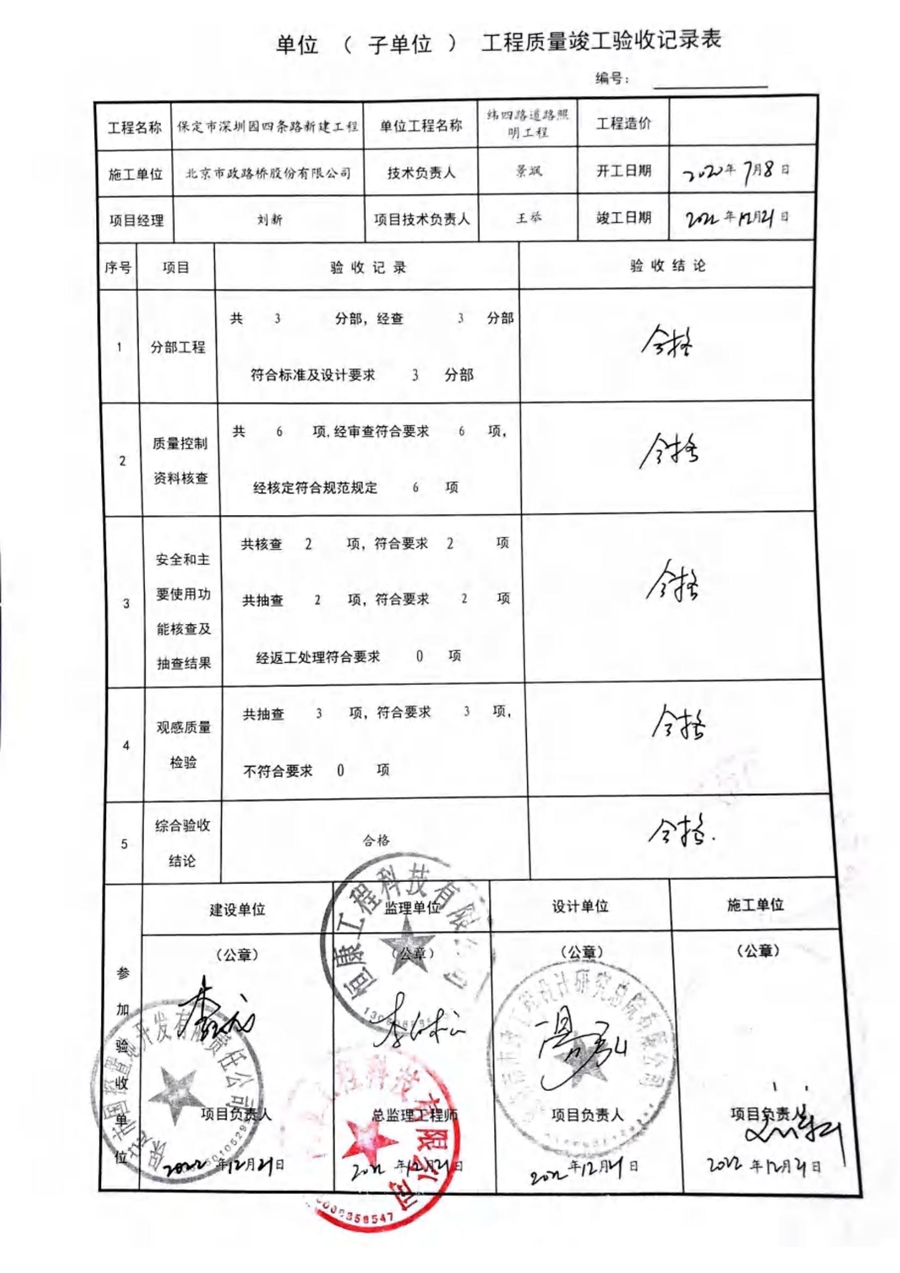 单位 （ 子单位 ） 工程质量竣工验收记录表
编号：
工程名称 保定市深圳园四条路新建工程 单位工程名称 纬四路道路照 工程造价
明工程
施工单位 北京市政路桥股份有限公司 技术负责人 开工日期 2020年7月8日
项目经理 刘新 项目技术负责人 竣工日期 2022年12月21日
序号 项目 验收记录 验收结论
共 3 分部，经查 3 分部
1 分部工程 合格
符合标准及设计要求 3 分部
质量控制 共 6 项,经审查符合要求 6 项，
2 合格
资料核查 经核定符合规范规定 6 项
共核查 2 项，符合要求 2 项
安全和主
要使用功 共抽查 2 项，符合要求 2 项
3 合格
能核查及
抽查结果 经返工处理符合要求 0 项
共抽查 3 项，符合要求 3 项，
观感质量
4 合格
检验 不符合要求 0 项
综合验收
5 合格 合格.
结论
参加验收单位
建设单位 监理单位 设计单位 施工单位
（公章） （公章） （公章） （公章）
恒康工程科技有限公司
设计研究总院有限公司
开发有限责任公司
工程科技有限公司
项目负责人 总监理工程师 项目负责人 项目负责人
2022年12月21日 2022年12月21日 2022年12月21日 2022年12月21日